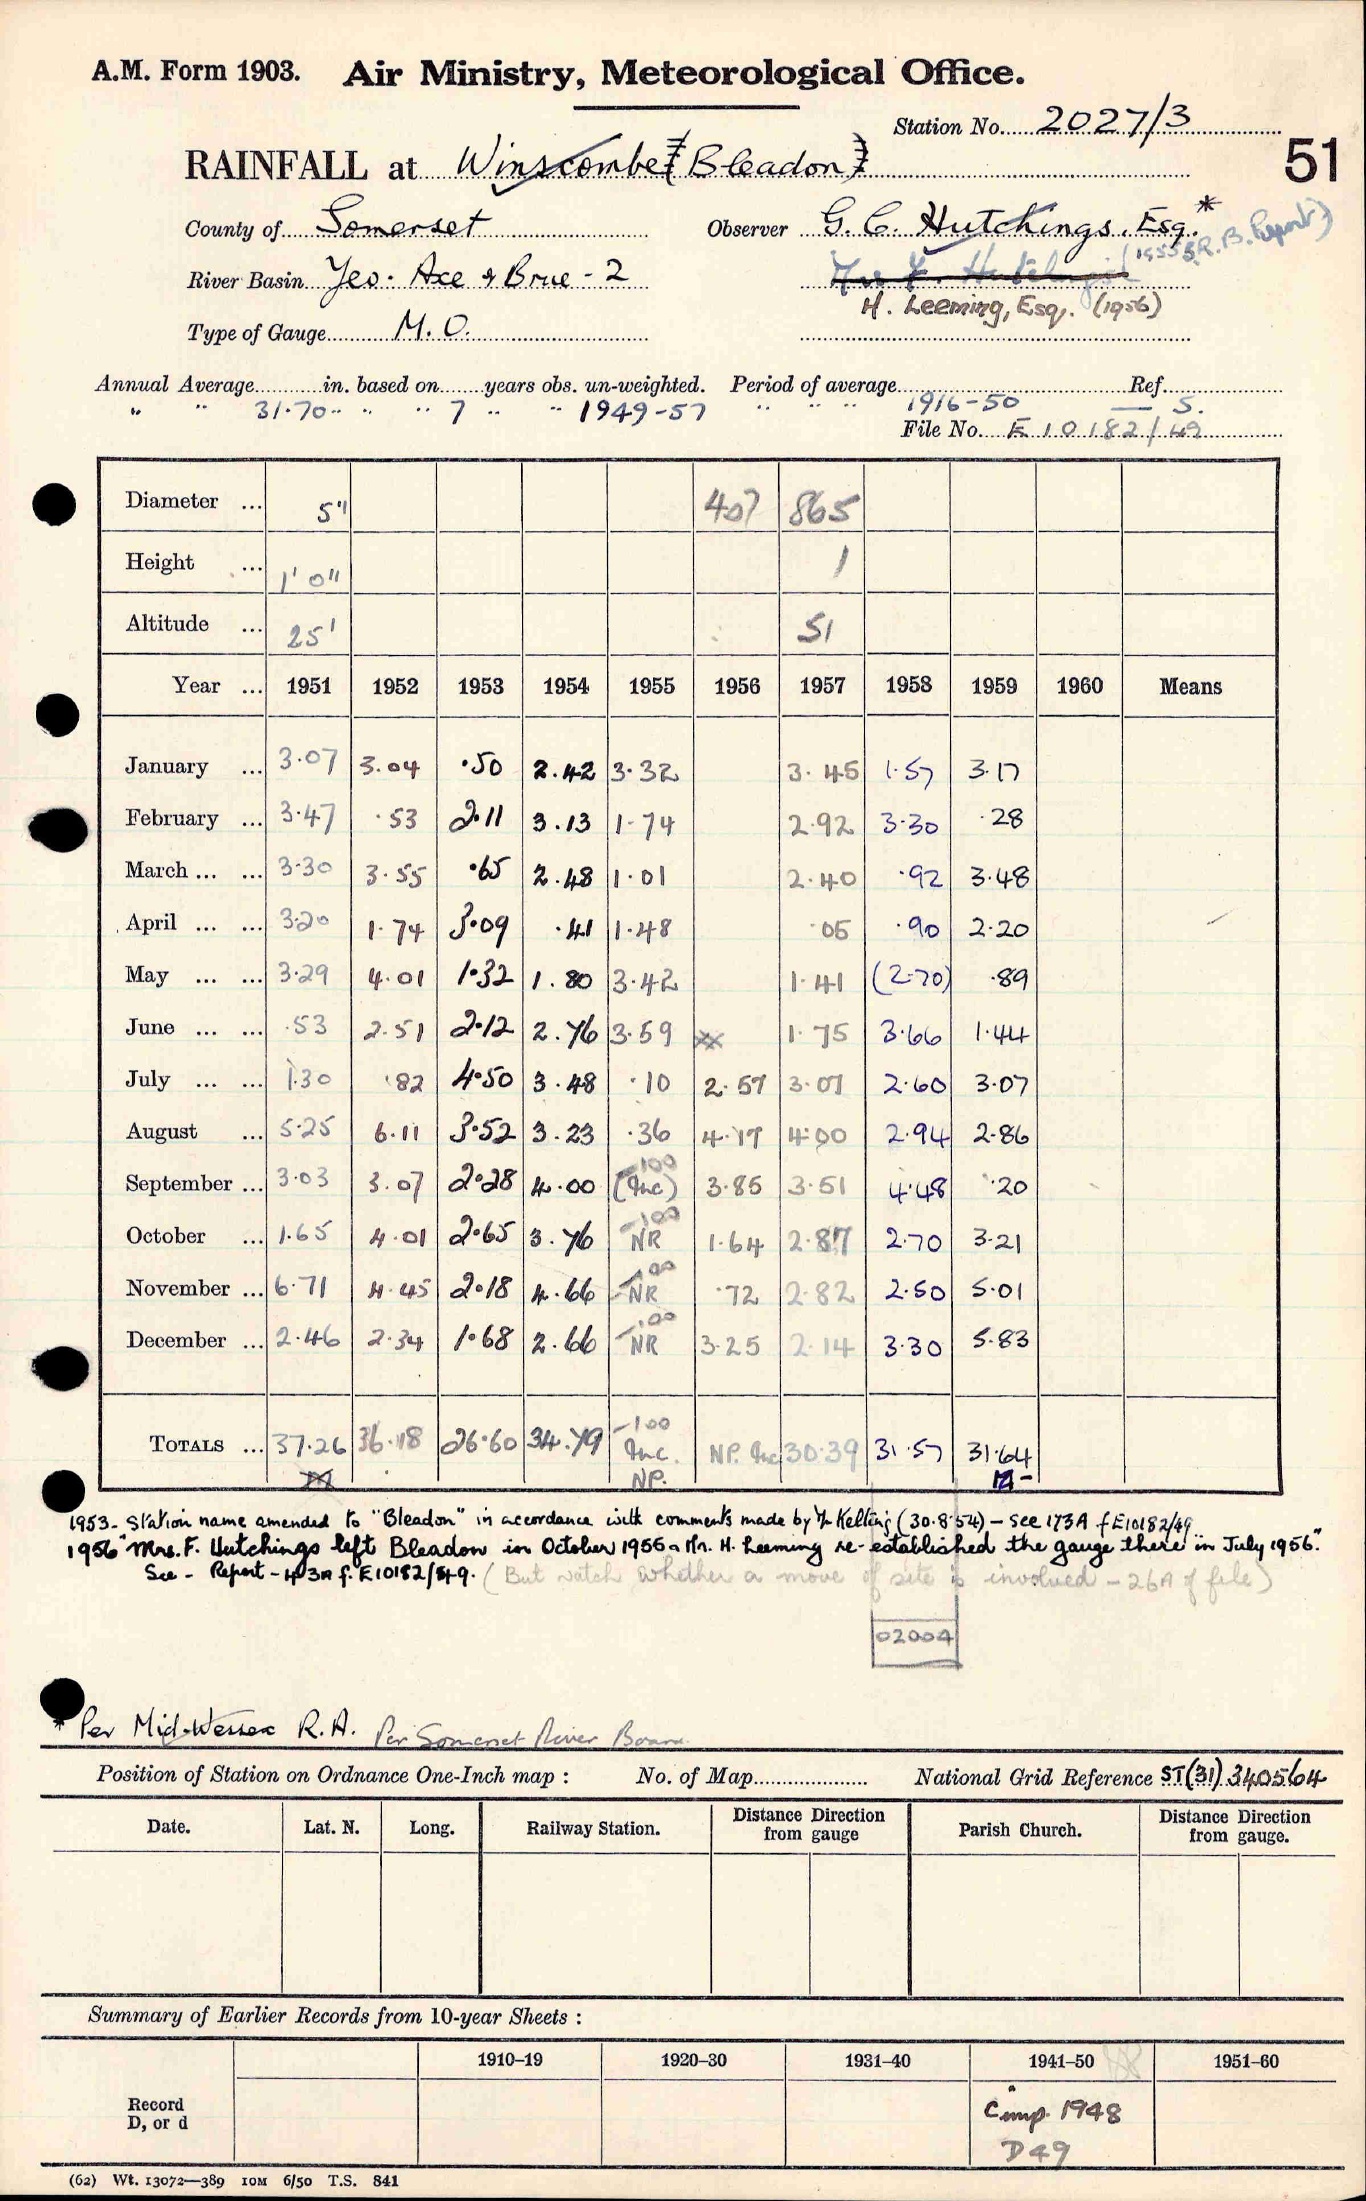 A.M. Form 1903. Air Ministry, Meteorological Office.
Station No. 2027/3
51
RAINFALL at Winscombe (Bleadon)
County of Somerset Observer G. C. Hutchings, Esq.*
(1955 S.R.B. Report)
River Basin Yeo. Axe & Brue - 2
H. Leeming, Esq. (1956)
Type of Gauge M.O.
Annual Average in. based on years obs. un-weighted. Period of average Ref.
" " 31.70 " " " 7 " " 1949-57 " " " 1916-50 — S.
File No. E 10182/49
Diameter ... 5" 407 865
Height ... 1' 0" 1
Altitude ... 25' 51
Year ... 1951 1952 1953 1954 1955 1956 1957 1958 1959 1960 Means
January ... 3.07 3.04 .50 2.42 3.32 3.45 1.57 3.17
February ... 3.47 .53 2.11 3.13 1.74 2.92 3.30 .28
March ... ... 3.30 3.55 .65 2.48 1.01 2.40 .92 3.48
April ... ... 3.20 1.74 3.09 .41 1.48 .05 .90 2.20
May ... ... 3.29 4.01 1.32 1.80 3.42 1.41 (2.70) .89
June ... ... .53 2.51 2.12 2.76 3.59 xx 1.75 3.66 1.44
July ... ... 1.30 .82 4.50 3.48 .10 2.57 3.07 2.60 3.07
August ... 5.25 6.11 3.52 3.23 .36 4.17 4.00 2.94 2.86
September ... 3.03 3.07 2.28 4.00 -100 (Inc) 3.85 3.51 4.48 .20
October ... 1.65 4.01 2.65 3.76 -100 NR 1.64 2.87 2.70 3.21
November ... 6.71 4.45 2.18 4.66 -100 NR .72 2.82 2.50 5.01
December ... 2.46 2.34 1.68 2.66 -100 NR 3.25 2.14 3.30 5.83
TOTALS ... 37.26 36.18 26.60 34.79 -100 Inc. NP. NP. Inc 30.39 31.57 31.64
1953 - Station name amended to "Bleadon" in accordance with comments made by Mr Kelling (30.8.54) - see 173A f E10182/49
1956 "Mrs. F. Hutchings left Bleadon in October 1955 & Mr. H. Leeming re-established the gauge there in July 1956."
See - Report - 43A f. E10182/49. (But watch whether a move of site is involved - 26A of file)
02004
* Per Mid-Wessex R.A. Per Somerset River Board
Position of Station on Ordnance One-Inch map : No. of Map National Grid Reference ST(31) 340564
Date. Lat. N. Long. Railway Station. Distance Direction from gauge Parish Church. Distance Direction from gauge.
Summary of Earlier Records from 10-year Sheets :
1910-19 1920-30 1931-40 1941-50 1951-60
Record
D, or d
Cmp. 1948
D49
(62) Wt. 13072—389 10M 6/50 T.S. 841